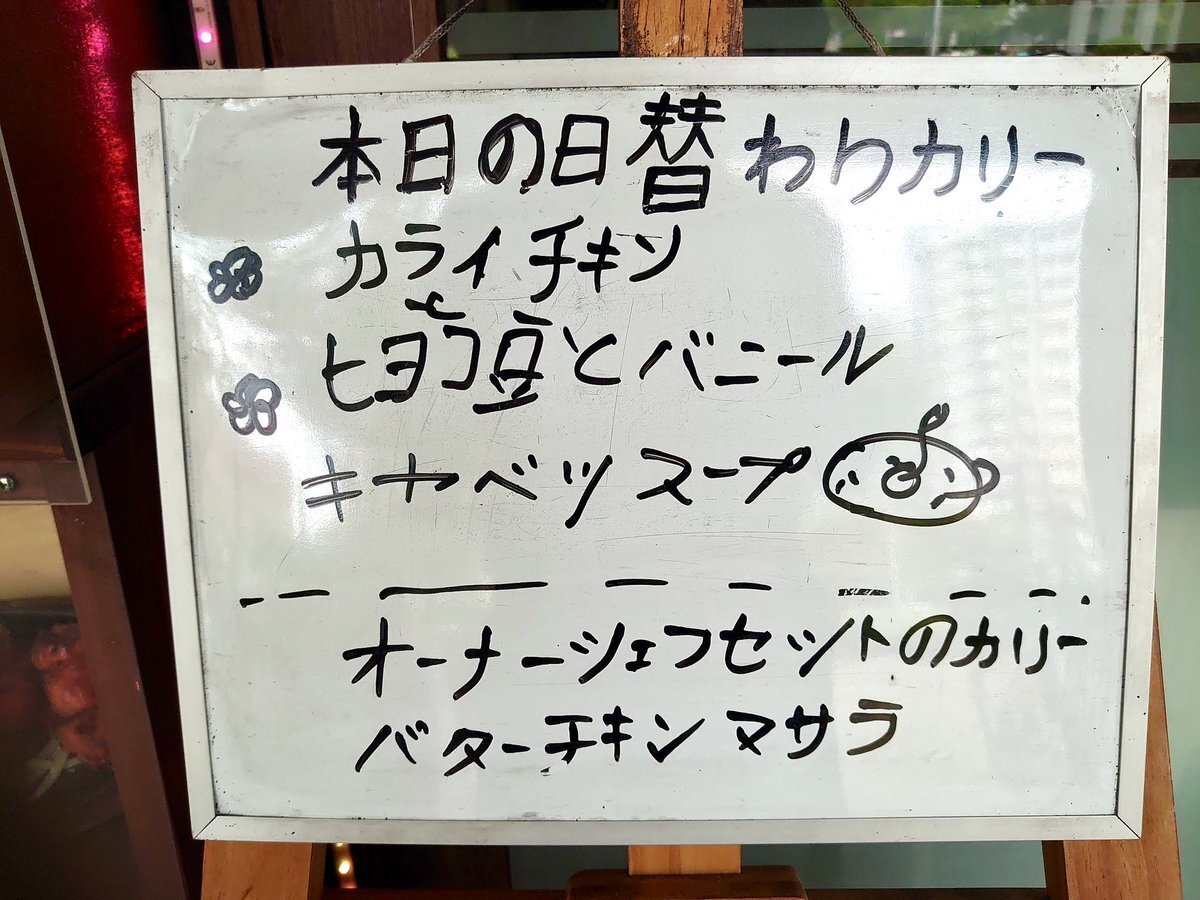 本日の日替わりカリー
カライチキン
ヒヨコ豆とバニール
キャベツスープ
オーナーシェフセットのカリー
バターチキンマサラ